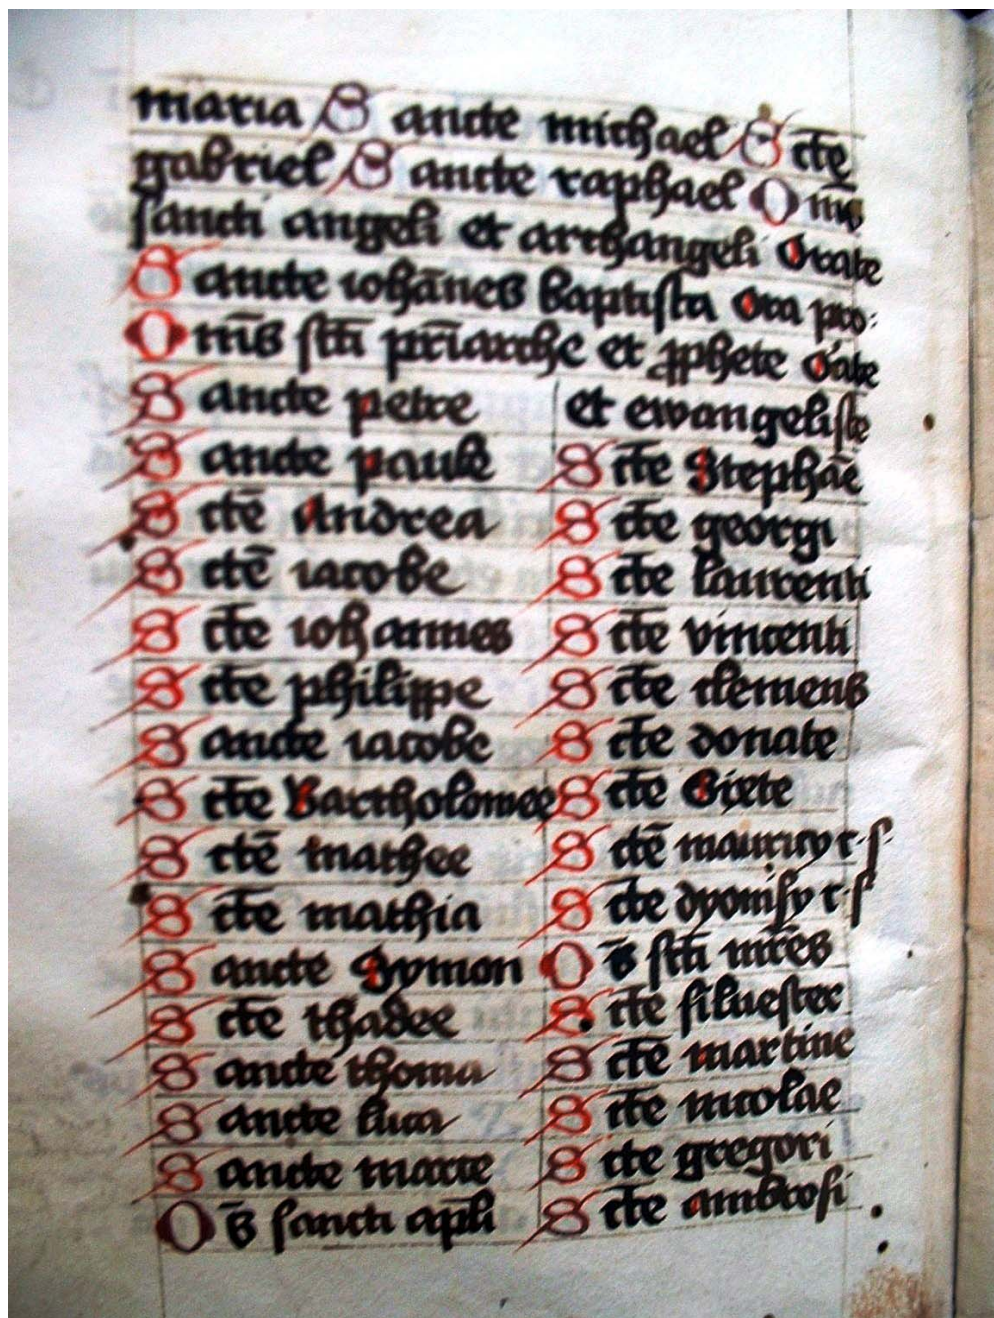 maria Sancte michael Scte
gabriel Sancte raphael Oms
sancti angeli et archangeli Orate
Sancte iohānes baptista Ora pro:
Om̄s sc̄ti pr̄iarche et ꝓphete Orate
Sancte petre
Sancte paule
Sctē Andrea
Sctē iacobe
Sc̄te iohannes
Sc̄te philippe
Sancte iacobe
Sc̄te Bartholomee
Sctē mathee
Sc̄te mathia
Sancte Symon
Sc̄te thadee
Sancte thoma
Sancte luca
Sancte marce
Ob̄s sancti apl̄i
et ewangeliste
Sc̄te Stephāe
Sc̄te georgi
Sc̄te laurenti
Sc̄te vincenti
Sc̄te clemens
Sc̄te donate
Sc̄te Sixte
Sctē mauricy c·s·
Sc̄te dyonisy c·s
Ob̄s sc̄ti mr̄es
Sc̄te siluester
Sc̄te martine
Sc̄te nicolae
Scte gregori
Sc̄te ambrosi